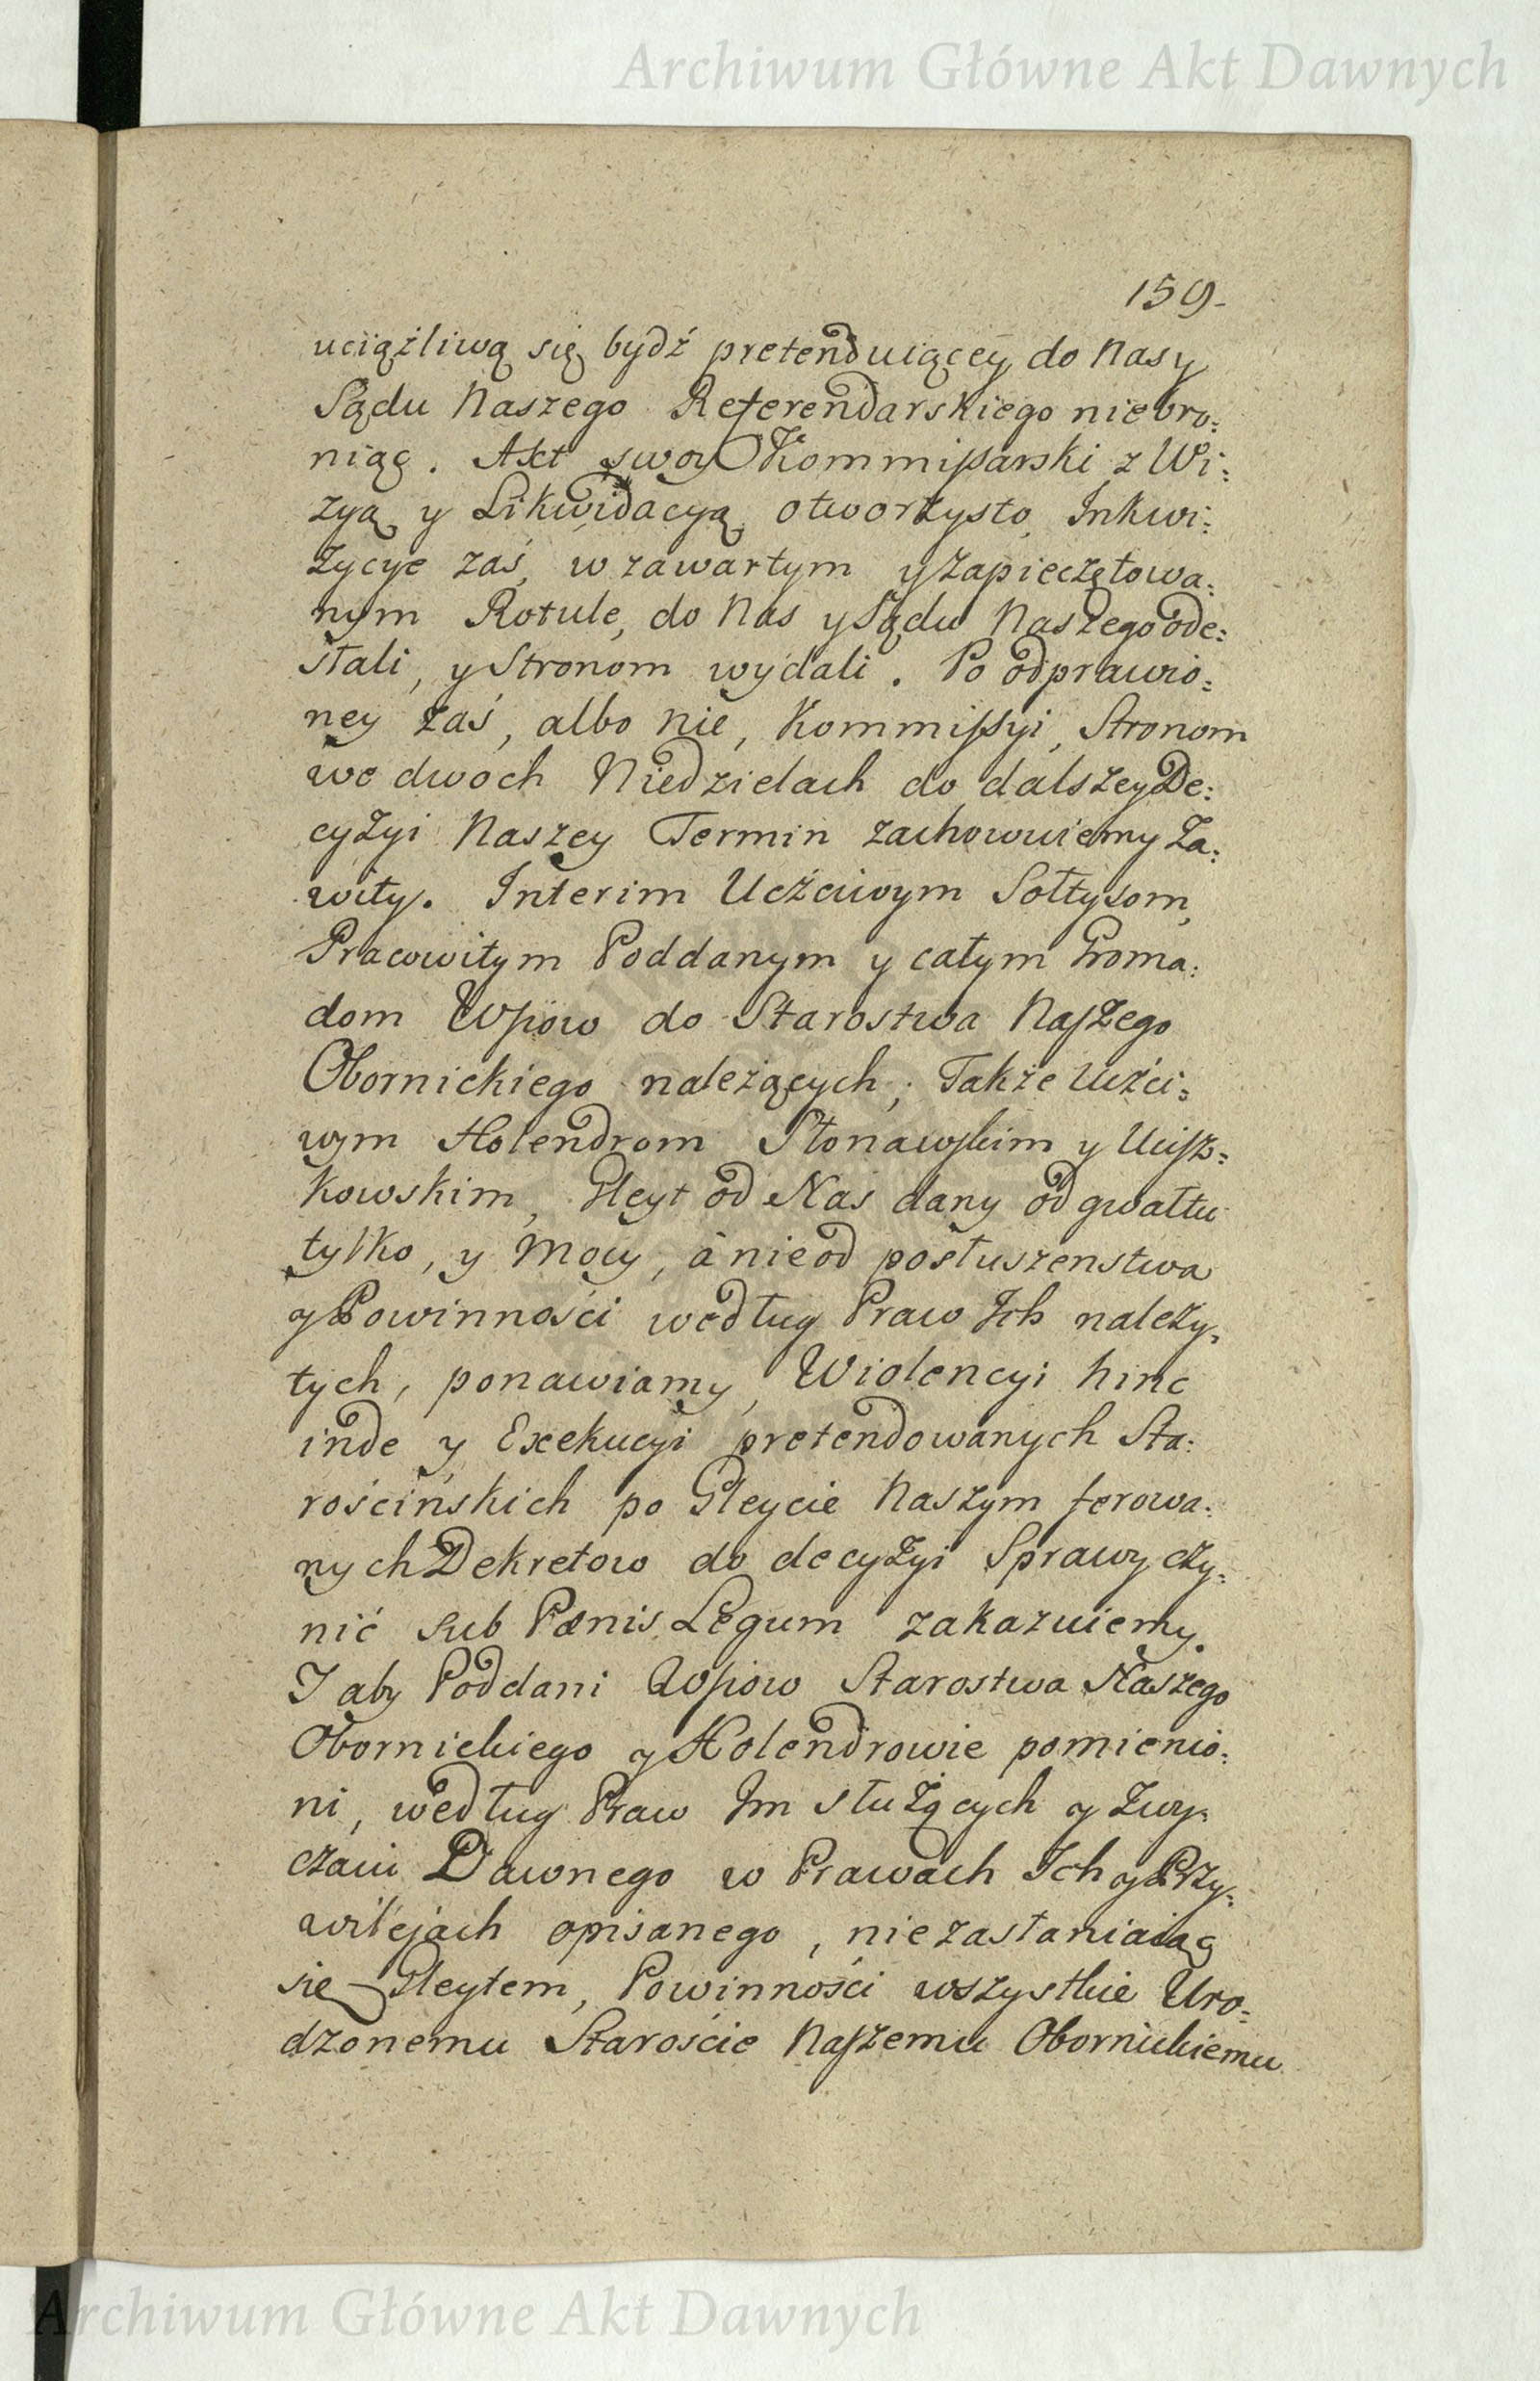 Archiwum Główne Akt Dawnych
159.
uciążliwą się bydź pretenduiącey do Nas y
Sądu Naszego Referendarskiego niebro:
niąc. Akt swoy Kommißarski z Wi:
zyą y Likwidacyą otworzysto, Inkwi:
zycye zaś, w zawartym y zapieczętowa:
nym Rotule, do Nas y Sądu Naszego ode:
słali, y Stronom wydali. Po odprawio:
ney zaś, albo nie, Kommißyi, Stronom
we dwoch Niedzielach do dalszey De:
cyzyi Naszey Termin zachowuiemy Za:
wity. Interim Uczciwym Sołtysom,
Pracowitym Poddanym y całym Groma:
dom Wsiow do Starostwa Naszego
Obornickiego należących; Także Uczci:
wym Holendrom Słonawskim y Uciss:
kowskim, Gleyt od Nas dany od gwałtu
tylko, y Mocy, a nie od posłuszenstwa
y Powinności według Praw Ich należy:
tych, ponawiamy, Wiolencyi hinc
inde y Exekucyi pretendowanych Sta:
rościńskich po Gleycie Naszym ferowa:
nych Dekretow do decyzyi Sprawy czy:
nić sub Pænis Legum zakazuiemy.
I aby Poddani Wsiow Starostwa Naszego
Obornickiego y Holendrowie pomienio:
ni, według Praw Im służących y Zwy:
czaiu Dawnego w Prawach Ich y Przy:
wilejach opisanego, niezasłaniaiąc
się Gleytem, Powinności wszystkie Uro:
dzonemu Staroście Naszemu Obornickiemu
Archiwum Główne Akt Dawnych